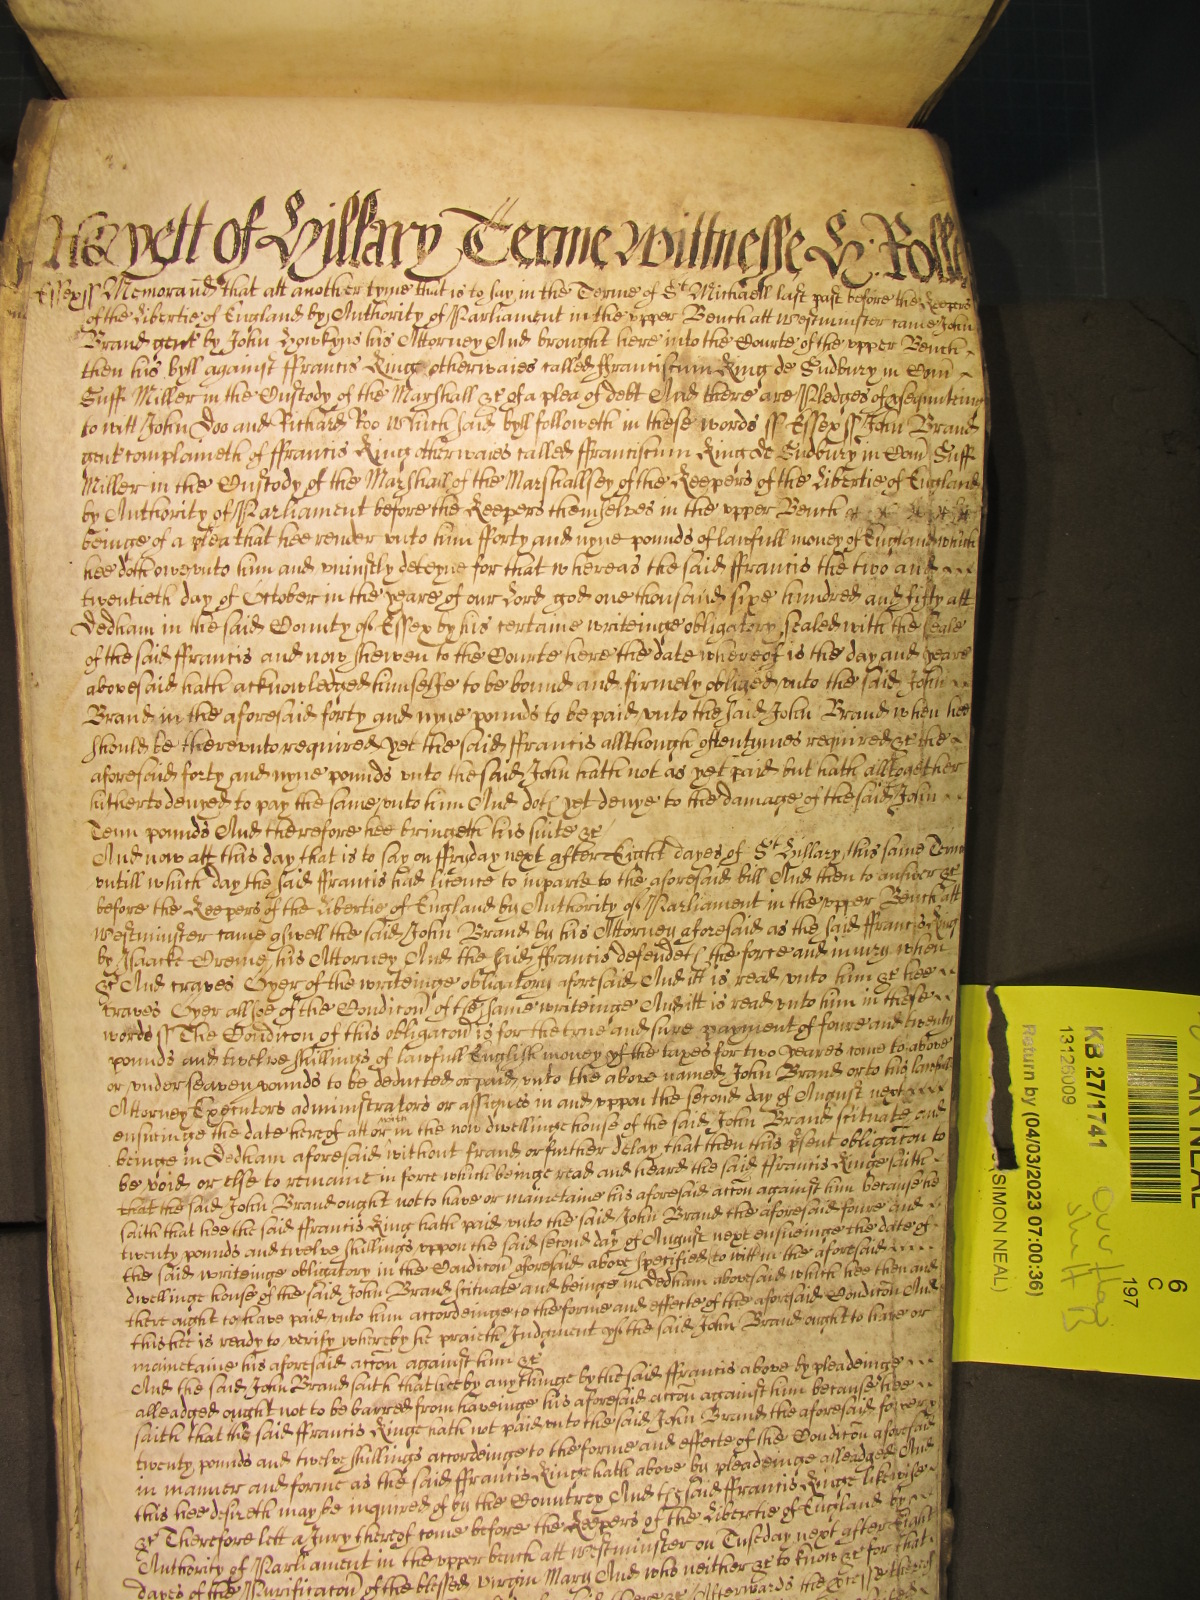 yett of Hillary Terme Wittnesse H: Rolle
Essex ss Memorand that att another tyme that is to say in the Terme of St Michaell last past before the Keepers
of the Libertie of England by Authority of Parliament in the vpper Bench att Westminster came John
Brand gent by John Hawkyns his Attorney And brought here into the Courte of the vpper Bench
then his byll against ffrancis Ringe otherwaies called ffranciscum Ring de Sudbury in Com
Suff Miller in the Custody of the Marshall &c of a plea of debt And there are Pledges of
to witt John Doo and Richard Roo Which said byll followeth in these words ss Essex ss John Brand
gent complaineth of ffrancis Ring otherwaies called ffranciscum Ring de Sudbury in Com Suff
Miller in the Custody of the Marshall of the Marshallsey of the Keepers of the Libertie of England
by Authority of Parliament before the Keepers themselves in the vpper Bench
beinge of a plea that hee render vnto him fforty and nyne pounds of lawfull money of England which
hee doth owe vnto him and vniustly deteyne for that whereas the said ffrancis the two and
twentieth day of October in the yeare of our Lord god one thousand sixe hundred and fifty att
Dedham in the said County of Essex by his certaine writeinge obligatory sealed with the seale
of the said ffrancis and now shewen to the Courte here the date whereof is the day and yeare
abovesaid hath acknowledged himselfe to be bound and firmely obliged vnto the said John
Brand in the aforesaid forty and nyne pounds to be paid vnto the said John Brand when hee
should be therevnto required yet the said ffrancis allthough oftentymes required &c the
aforesaid forty and nyne pounds vnto the said John hath not as yet paid but hath alltogether
hitherto denyed to pay the same vnto him And doth yet denye to the damage of the said John
Tenn pounds And therefore hee bringeth his suite &c
And now att this day that is to say on ffryday next after Eight dayes of St Hillary this same Terme
vntill which day the said ffrancis had licence to imparle to the aforesaid bill And then to answer &c
before the Keepers of the Libertie of England by Authority of Parliament in the vpper Bench att
Westminster came aswell the said John Brand by his Attorney aforesaid as the said ffrancis Ringe
by Isaacke Creme his Attorney And the said ffrancis defendeth the force and iniury when
&c And craves Oyer of the writeinge obligatory aforesaid And itt is read vnto him &c hee
craves Oyer allsoe of the Condicon of the same writeinge And itt is read vnto him in these
words ss The Condicon of this obligacon is for the true and sure payment of foure and twenty
pounds and twelve shillings of lawfull English money yf the taxes for two yeares come to above
or vnder seaven pounds to be deducted or paid vnto the above named John Brand or to his lawfull
Attorney Executors administrators or assignes in and vppon the second day of August next
ensueinge the date hereof att or in the now dwellinge house of the said John Brand scituate and
beinge in Dedham aforesaid without fraud or further delay that then this present obligacon to
be void or else to remaine in force which beinge read and heard the said ffrancis Ringe saith
that the said John Brand ought not to have or maintaine his aforesaid accon against him because he
saith that hee the said ffrancis Ring hath paid vnto the said John Brand the aforesaid foure and
twenty pounds and twelve shillings vppon the said second day of August next ensueinge the date of
the said writeinge obligatory in the Condicon aforesaid above specified to witt in the aforesaid
dwellinge house of the said John Brand scituate and beinge in Dedham abovesaid which hee then and
there ought to have paid vnto him accordeinge to the forme and effecte of the aforesaid Condicon And
this hee is ready to verify whereby he praieth Judgment yf the said John Brand ought to have or
maintaine his aforesaid accon against him &c
And the said John Brand saith that hee by any thinge by the said ffrancis above by pleadeinge
alleadged ought not to be barred from haveinge his aforesaid accon against him because hee
saith that the said ffrancis Ringe hath not paid vnto the said John Brand the aforesaid
twenty pounds and twelve shillings accordeinge to the forme and effecte of the Condicon aforesaid
in manner and forme as the said ffrancis Ringe hath above by pleadeinge alleadged And
this hee desireth may be inquired of by the Countrey And the said ffrancis Ringe likewise
&c Therefore lett a Jury thereof come before the Keepers of the Libertie of England by
Authority of Parliament in the vpper bench att Westminster on Tuseday next after Eight
dayes of the Purificacon of the blessed virgin Mary And who neither &c to know &c for that
Afterwards the
KB 27/1741
13126009
Return by (04/03/2023 07:00:36)
(SIMON NEAL)
6
C
197